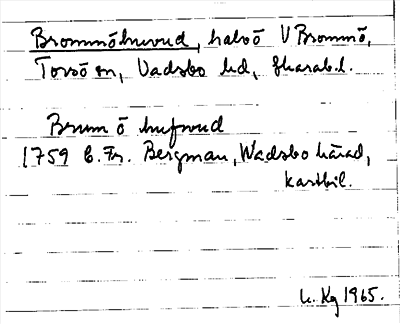 Brommöhuvud, halvö V Brommö,
Torsö sn, Vadsbo hd, Skarab.l.
Brum ö hufwud
1759 C. Fr. Bergman, Wadsbo härad,
kartbil.
L. Kg 1965.